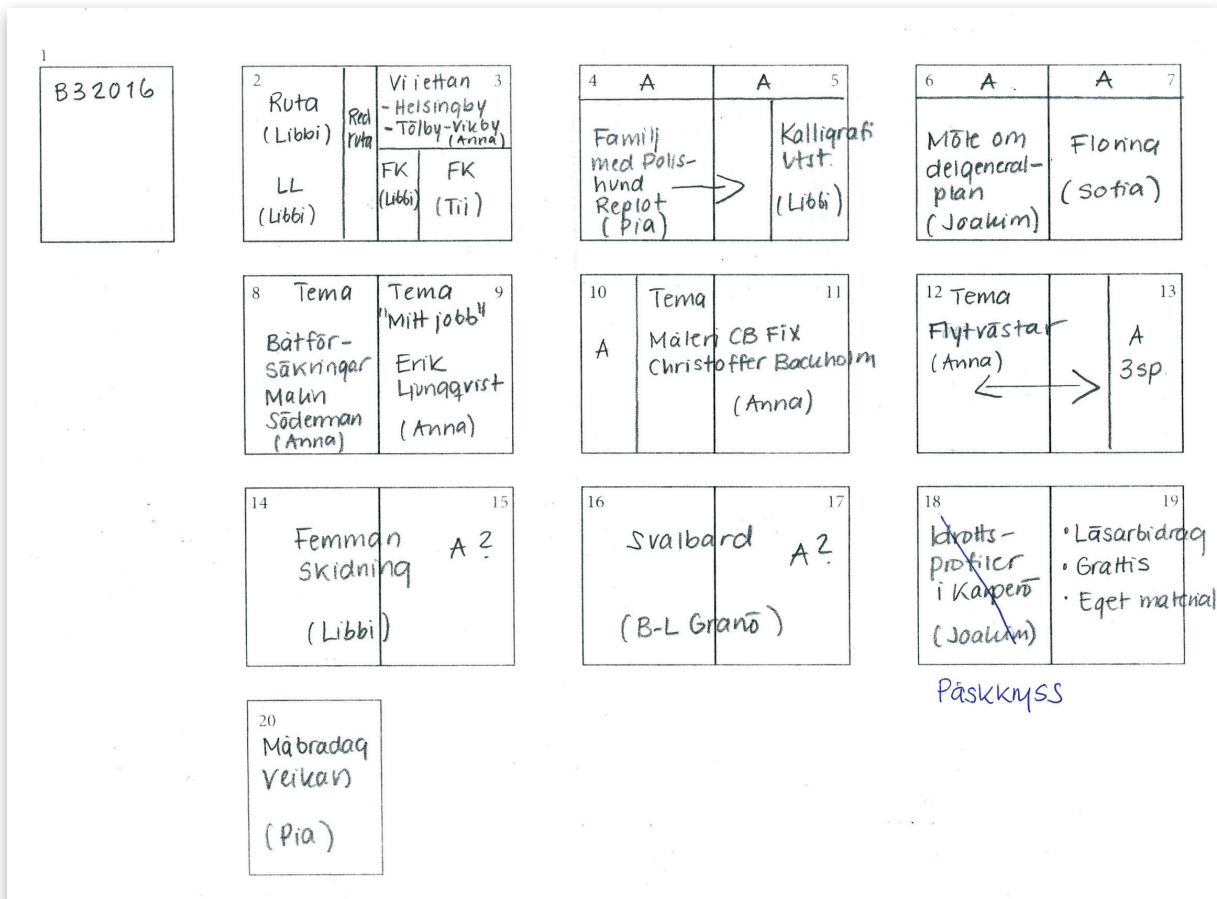 1
B32016
2
Ruta
(Libbi)
LL
(Libbi)
Red
ruta
3
Vi i ettan
- Helsingby
- Tölby-Vikby
(Anna)
FK
(Libbi)
FK
(Tii)
4
A
Familj
med Polis-
hund
Replot
(Pia)
A
5
Kalligrafi
Utst.
(Libbi)
6
A
Möte om
delgeneral-
plan
(Joakim)
A
7
Florina
(Sofia)
8
Tema
Båtför-
säkringar
Malin
Söderman
(Anna)
Tema
9
"Mitt jobb"
Erik
Ljungqvist
(Anna)
10
A
Tema
11
Måleri CB Fix
Christoffer Backholm
(Anna)
12 Tema
Flytvästar
(Anna)
13
A
3sp.
14
15
Femman
Skidning
A?
(Libbi)
16
17
Svalbard
A?
(B-L Granö)
18
Idrotts-
profiler
i Karperö
(Joakim)
19
• Läsarbidrag
• Grattis
• Eget material
Påskkryss
20
Måbradag
Veikars
(Pia)